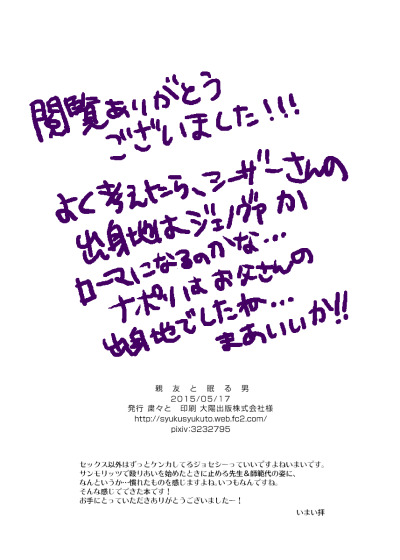 閲覧ありがとう
ございました!!!
よく考えたら、シーザーさんの
出身地はジェノヴァか
ローマになるのかな…
ナポリはお父さんの
出身地でしたね…
まあいいか!!
親友と眠る男
2015/05/17
発行 粛々と　印刷 大陽出版株式会社様
http://syukusyukuto.web.fc2.com/
pixiv:3232795
セックス以外はずっとケンカしてるジョセシーっていいですよねいまいです。
サンモリッツで殴りあいを始めたときに止める先生&師範代の姿に、
なんというか…慣れたものを感じますよね。いつもなんですね。
そんな感じでできた本です!
お手にとっていただきありがとうございましたー!
いまい拝